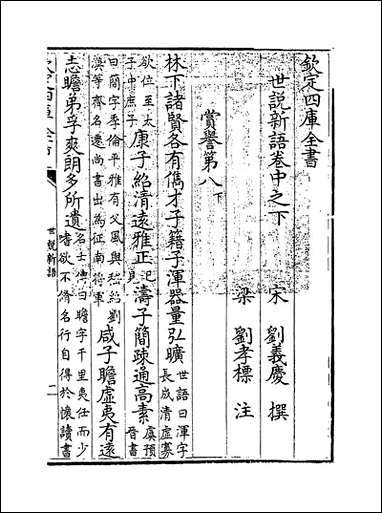 欽定四庫全書
世說新語卷中之下
宋 劉義慶 撰
梁 劉孝標 注
賞譽第八下
林下諸賢各有儁才子籍子渾器量弘曠世語曰渾字長成清虛寡
欲位至太子中庶子康子紹清遠雅正已見濤子簡疎通高素虞預晉書
曰簡字季倫平雅有父風與嵇紹劉漠等齊名遷尚書出為征南將軍咸子瞻虛夷有遠
志瞻弟孚爽朗多所遺名士傳曰瞻字千里夷任而少嗜欲不脩名行自得於懷讀書
世說新語